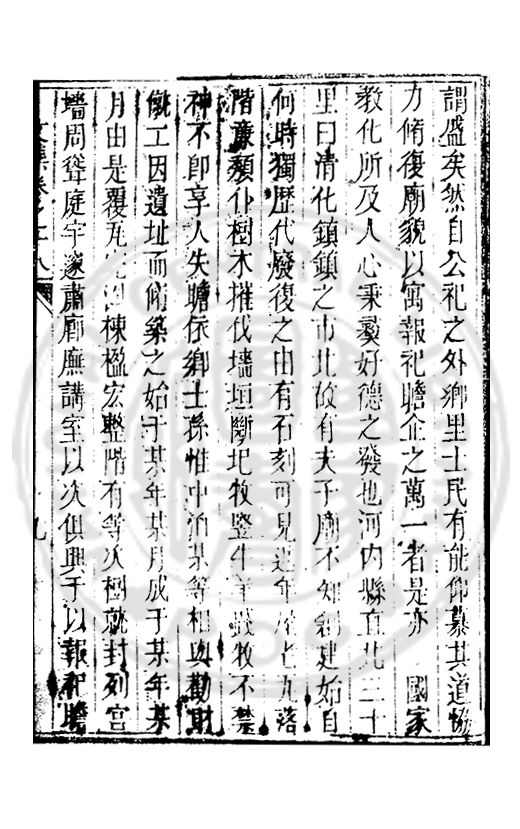 謂盛矣然自公祀之外鄉里士民有能仰慕其道恊
力脩復廟貌以寓報祀瞻企之萬一者是亦 國家
教化所及人心秉彞好德之發也河内縣直北三十
里曰清化鎮鎮之市北故有夫子廟不知創建始自
何時獨歷代廢復之由有石刻可見近年屋老九落
階兼頽仆樹木摧伐墻垣斷圮牧豎牛羊 牧不禁
神不卽享人失瞻依鄉士孫惟中 某等相與勸財
僦工因遺址而脩築之始于某年某月成于某年某
月由是覆瓦 棟楹宏整階有等次樹就封列宮
墻周聳庭宇邃肅廊廡講室以次俱興于以報祀瞻
文集卷之二八
九